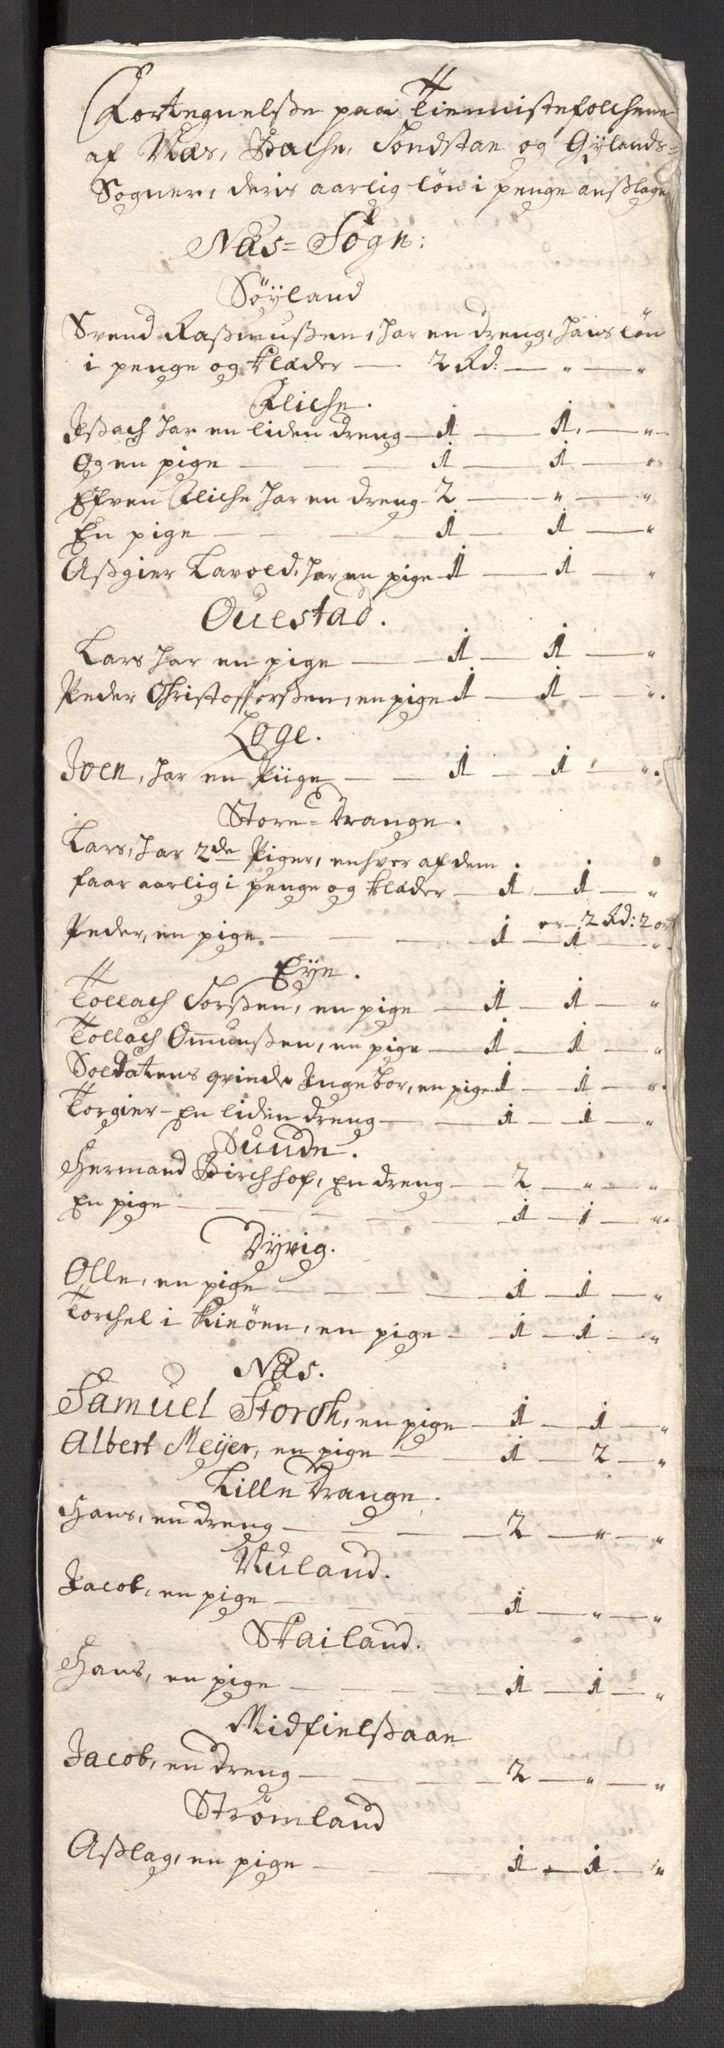 Fortegnelsse paa Tiennistefolchene
af Næs, Bache, Tonstan og Gylands=
Sogner, deris aarlig løn i penge anslage
Næs=Sogn:
Søyland
Svend Rasmussen, har en dreng, hans løn
i penge og klæder — 2 Rd: — " — "
Fliche.
Issach har en liden dreng — 1 — 1 — "
Og en pige — 1 — 1 — "
Efven Fliche har en dreng — 2 — " — "
En pige — 1 — 1 — "
Asgier Lavold, har en pige 1 — 1 — "
Ouestad.
Lars har en pige — 1 — 1 — "
Peder Christoffersen, en pige 1 — 1 — "
Løge.
Joen, har en Piige — 1 — 1 — "
Store=Drange.
Lars, har 2de Piger, enhver af dem
faar aarlig i penge og klæder — 1 — 1 — "
er 2 Rd: 2 ort
Peder, en pige — 1 — 1 — "
Eye.
Tollach Torssen, en pige — 1 — 1 — "
Tollach Omunssen, en pige — 1 — 1 — "
Soldatens qvinde Ingebor, en pige 1 — 1 — "
Torgier — En liden dreng — 1 — 1 — "
Sunde.
Hermand Birchhof, En dreng — 2 — " — "
En pige — 1 — 1 — "
Dyvig.
Olle, en pige — 1 — 1 — "
Torchel i Kieøen, en pige — 1 — 1 — "
Næs.
Samuel Storch, en pige — 1 — 1 — "
Albert Meyer, en pige — 1 — 2 — "
Lille Drange.
Hans, en dreng — 2 — " — "
Nuland.
Jacob, en pige — 1 — " — "
Skailand.
Hans, en pige — 1 — 1 — "
Midfielssaae
Jacob, en dreng — 2 — " — "
Strømland
Asslag, en pige — 1 — 1 — "